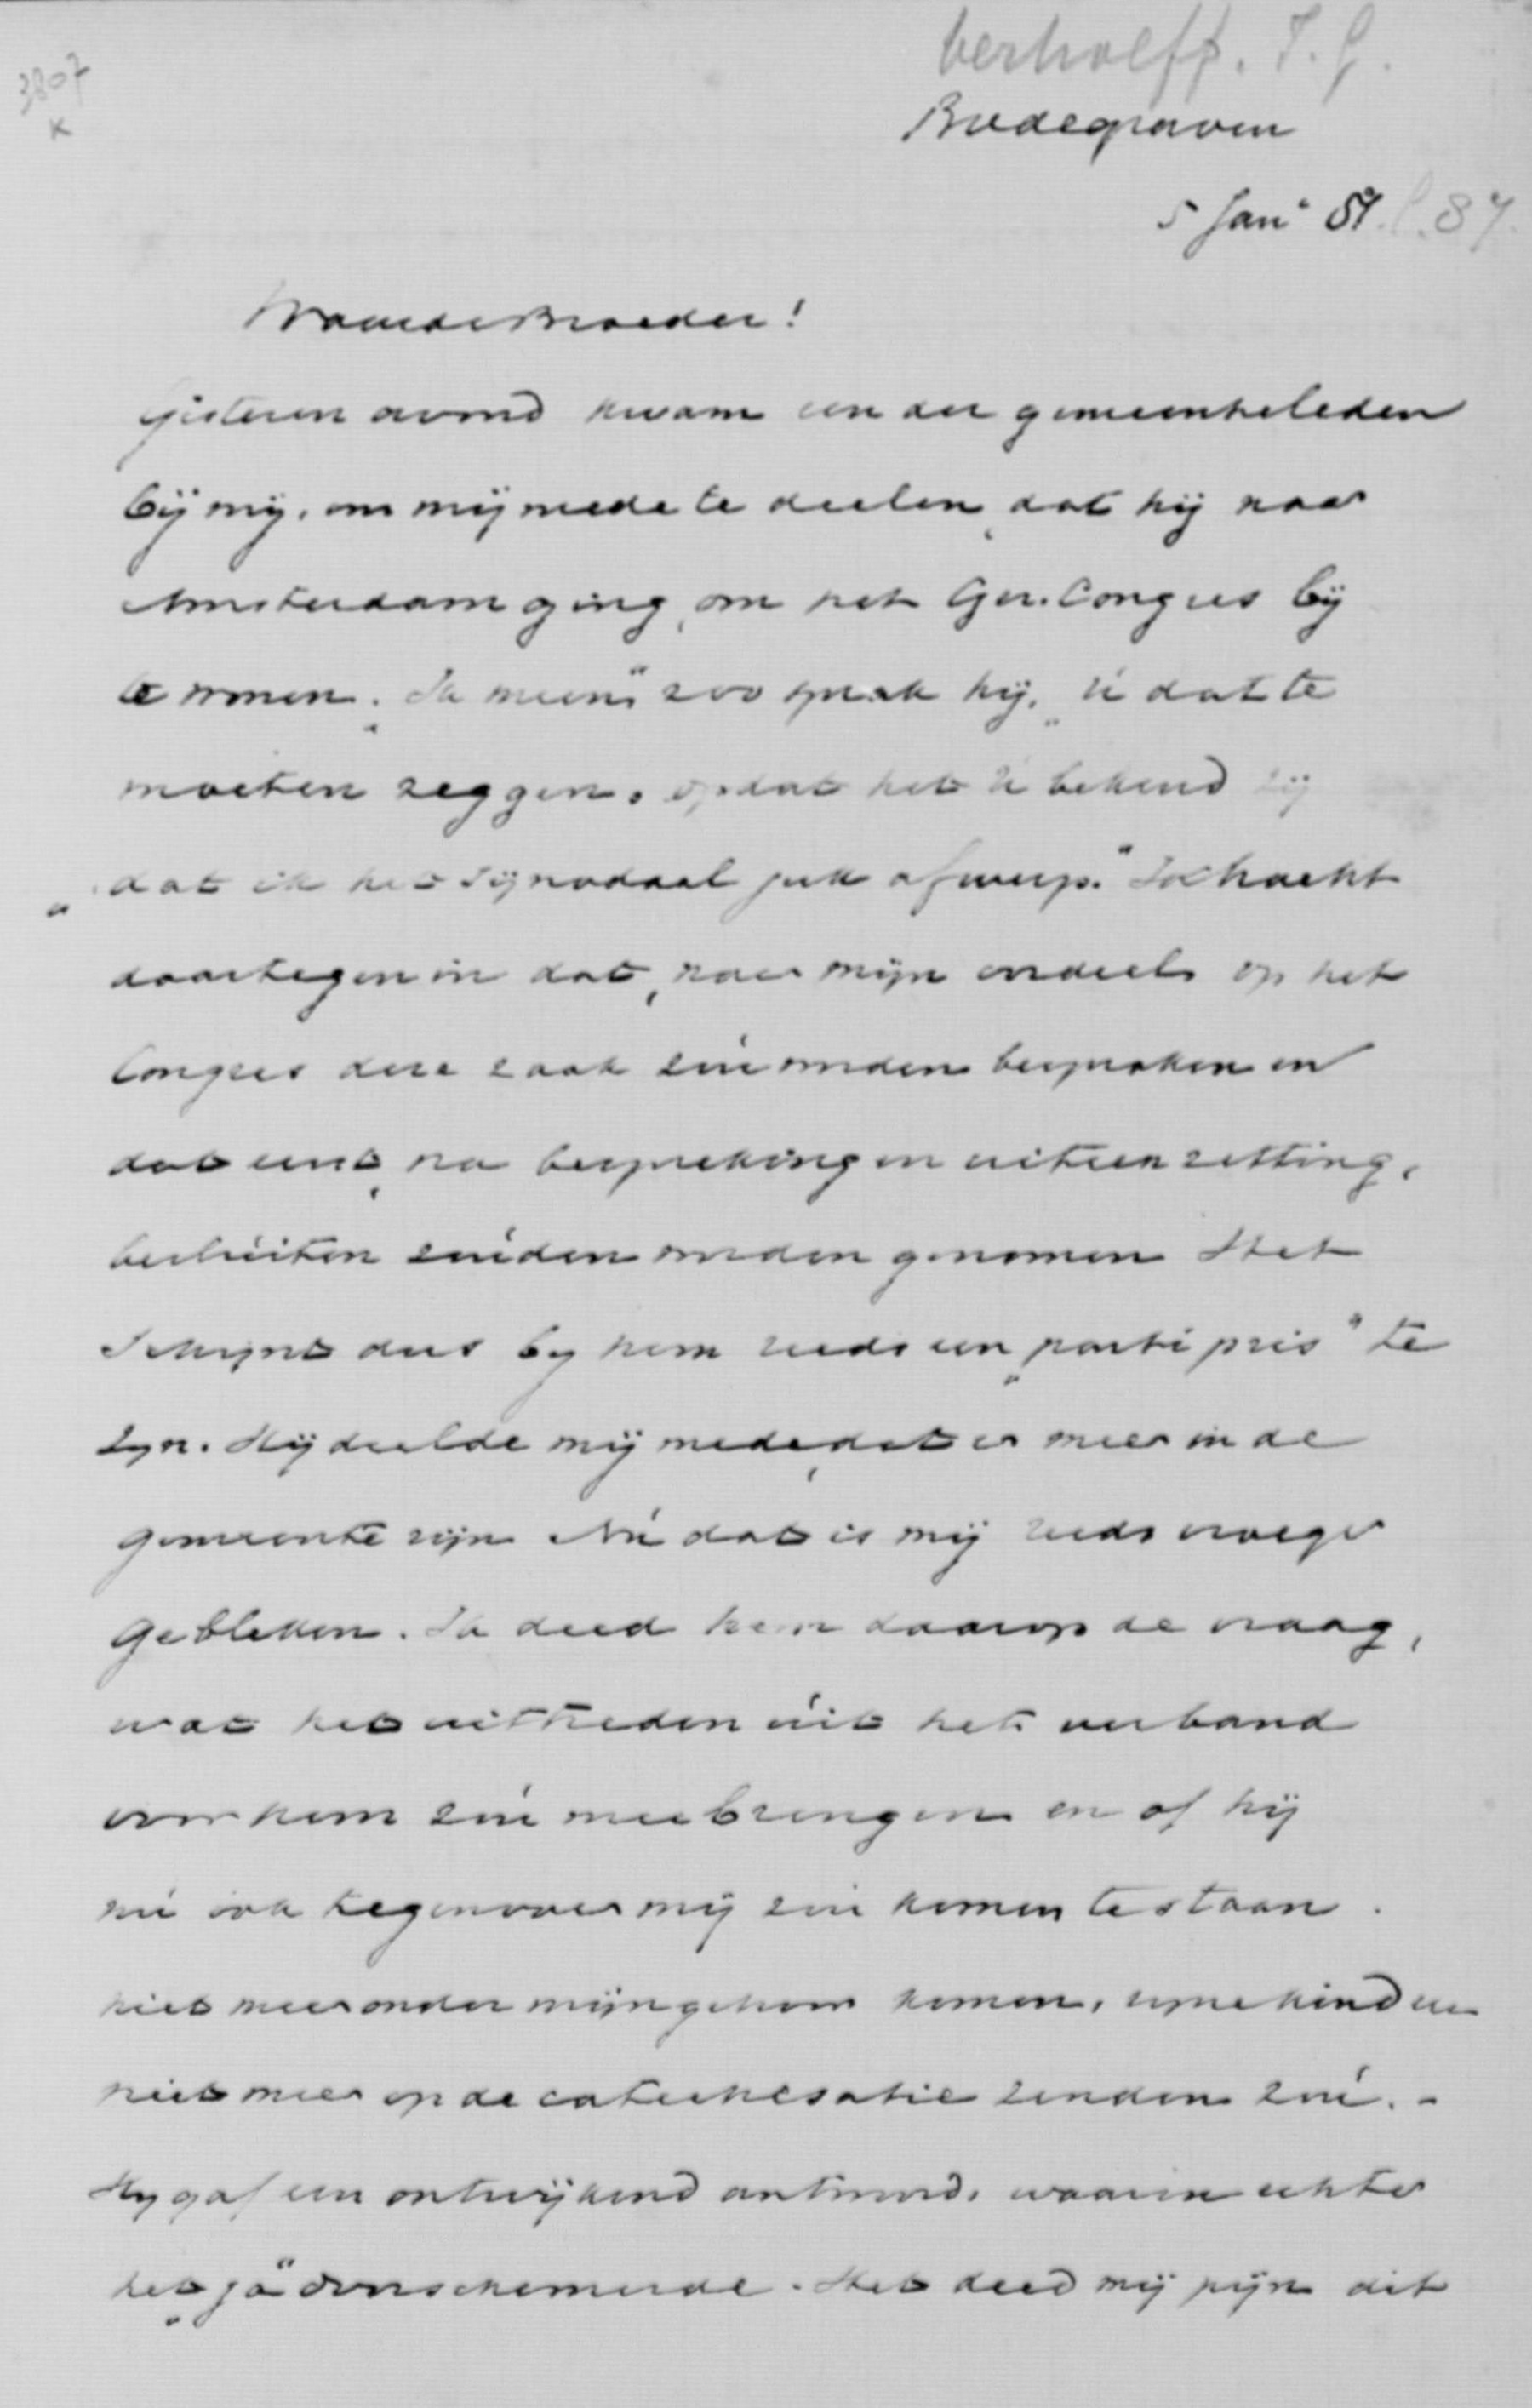 3807
K
Verhoeff. J. G.
Bodegraven
5 Jan. 87. 87.
Waarde Broeder!
Gisteren avond kwam een der gemeenteleden
bij mij, om mij mede te deelen, dat hij naar
Amsterdam ging, om het Ger. Congres bij
te wonen. „Ik meen" zoo sprak hij, „U dat te
moeten zeggen, opdat het U bekend zij
„dat ik het Synodaal juk afwerp." Ik bracht
daartegen in dat, naar mijn oordeel op het
Congres deze zaak zou worden besproken en
dat eerst, na bespreking en uiteenzetting,
besluiten zouden worden genomen Het
Schijnt dus by hem reeds een „parti pris" te
zyn. Hij deelde mij mede, dat er meer in de
gemeente zijn Nu dat is mij reeds vroeger
gebleken. Ik deed hem daarop de vraag,
wat het uittreden uit het verband
voor hem zou meebrengen en of hij
nu ook tegenover mij zou komen te staan.
niet meer onder mijn gehoor komen, zyne kinderen
niet meer op de catechesatie zenden zou. -
Hy gaf een ontwijkend antwoord, waarin echter
het „ja" doorschemerde. Het deed mij pijn dit